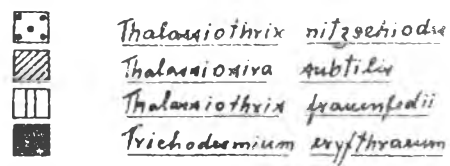 Thalassiothrix nitzschiodes
Thalassiosira subtilis
Thalassiothrix frauenfedii
Trichodesmium erythraeum